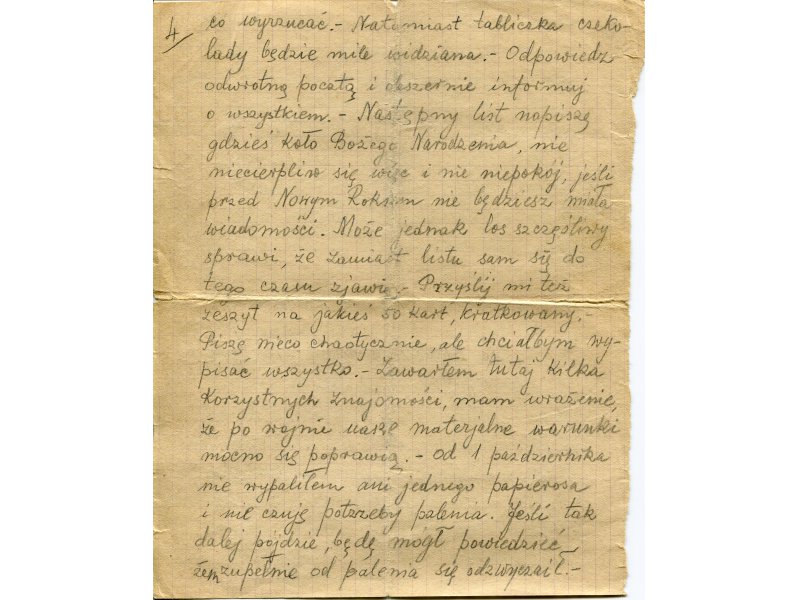 4/
co wyrzucać.- Natomiast tabliczka czeko-
lady będzie mile widziana.- Odpowiedz
odwrotną pocztą i obszernie informuj
o wszystkiem.- Następny list napiszę
gdzieś koło Bożego Narodzenia, nie
niecierpliw się więc i nie niepokój, jeśli
przed Nowym Rokiem nie będziesz miała
wiadomości. Może jednak los szczęśliwy
sprawi, że zamiast listu sam się do
tego czasu zjawię.- Przyślij mi też
zeszyt na jakieś 50 kart, kratkowany.-
Piszę nieco chaotycznie, ale chciałbym wy-
pisać wszystko.- Zawarłem tutaj kilka
korzystnych znajomości, mam wrażenie,
że po wojnie nasze materjalne warunki
mocno się poprawią.- Od 1 października
nie wypaliłem ani jednego papierosa
i nie czuję potrzeby palenia. Jeśli tak
dalej pójdzie, będę mógł powiedzieć,
żem zupełnie od palenia się odzwyczaił.-